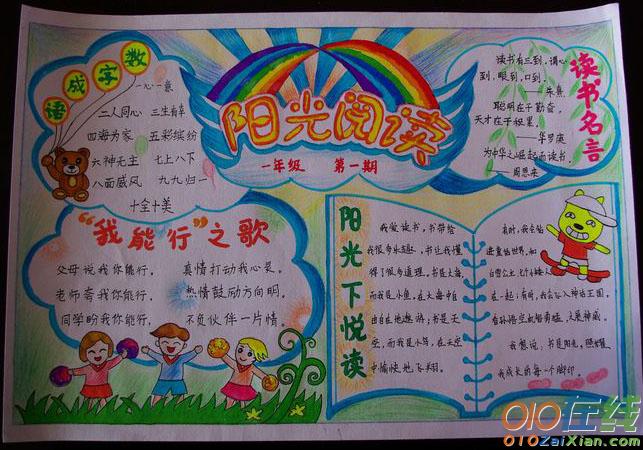 数字成语
一心一意
二人同心 三生有幸
四海为家 五彩缤纷
六神无主 七上八下
八面威风 九九归一
十全十美
阳光阅读
一年级 第一期
读书名言
读书有三到,谓心
到,眼到,口到。
——朱熹
聪明在于勤奋,
天才在于积累。
——华罗庚
为中华之崛起而读书。
——周恩来
“我能行”之歌
父母说我你能行, 真情打动我心灵。
老师夸我你能行, 热情鼓励方向明。
同学盼我你能行, 不负伙伴一片情。
阳光下悦读
我爱读书,书带给
我很多乐趣,书让我懂
得了很多道理。书是大海
而我是小鱼,在大海中自
由自在地遨游;书是天
空,而我是小鸟,在天空
中愉快地飞翔。
有时,我会钻
进童话世界,和
白雪公主
在一起;有时,我会飞入神话王国,
和孙悟空
我想说,书是阳光,照耀
我成长的每一个脚印。
010在线
010ZaiXian.com